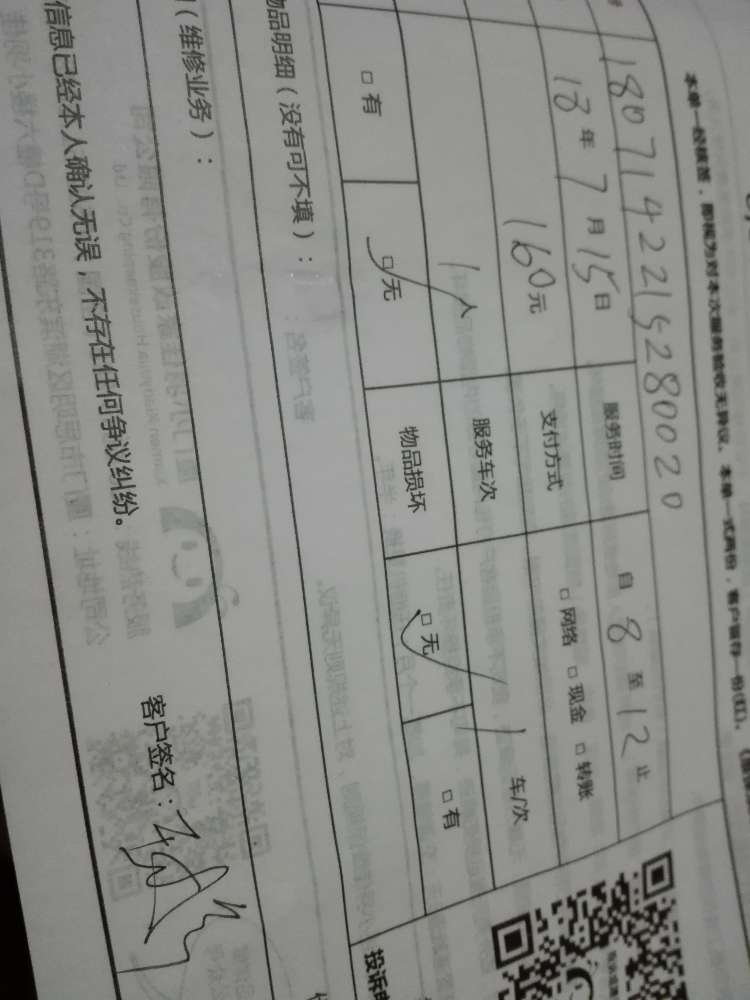 本单一经核签，即视为对本次服务验收无异议。本单一式两份，客户留存一份(红)。
1807142215280020
18年7月15日 服务时间 自8至12止
160元 支付方式 □网络 □现金 □转账
1人 服务车次 1车/次
□有 □无 物品损坏 □无 □有
物品明细（没有可不填）：
（维修业务）：
信息已经本人确认无误，不存在任何争议纠纷。
客户签名：
投诉